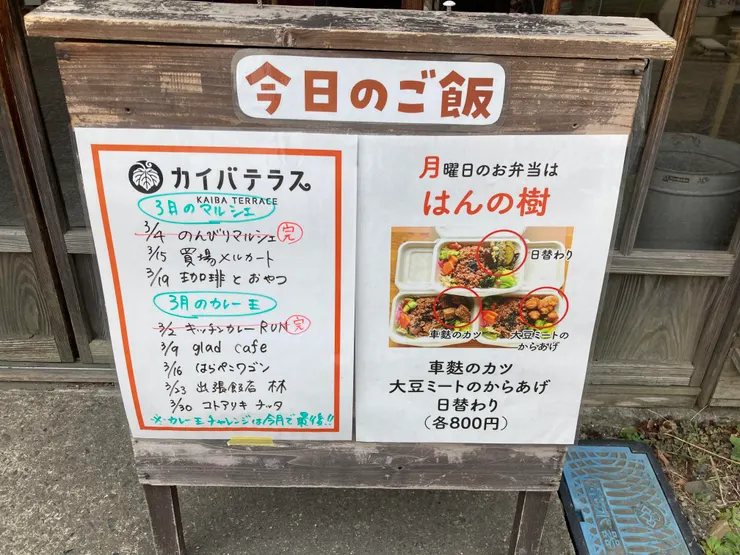 今日のご飯
カイバテラス
KAIBA TERRACE
3月のマルシェ
3/4 のんびりマルシェ 完
3/15 買場メルカート
3/19 珈琲とおやつ
3月のカレー王
3/2 キッチンカレーRUN 完
3/9 glad cafe
3/16 はらぺこワゴン
3/23 出張飯店 林
3/30 コトアリキ ナッタ
※カレー王チャレンジは今月で最後!!
月曜日のお弁当は
はんの樹
日替わり
車麩のカツ
大豆ミートの
からあげ
車麩のカツ
大豆ミートのからあげ
日替わり
(各800円)